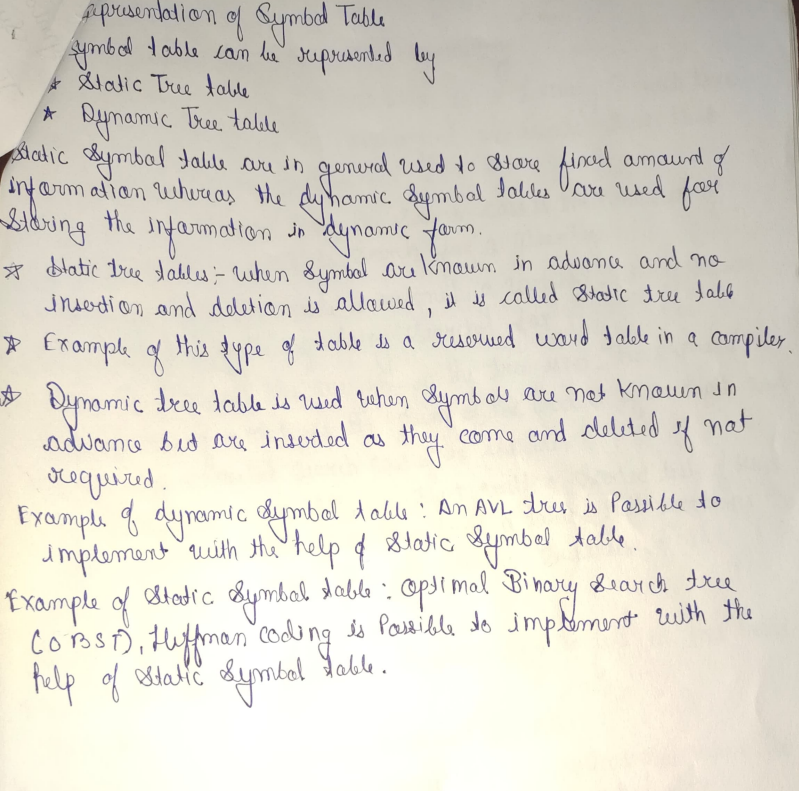 epresentation of Symbol Table
symbol table can be represented by
* Static Tree table
* Dynamic Tree table
Static Symbol table are in general used to store fixed amount of
information whereas the dynamic Symbol tables are used for
Storing the information in dynamic form.
* Static tree tables:- when Symbol are known in advance and no
insertion and deletion is allowed, it is called Static tree table
* Example of this type of table is a reserved word table in a compiler.
* Dynamic tree table is used when Symbols are not known in
advance but are inserted as they come and deleted if not
required.
Example of dynamic Symbol table: An AVL tree is Possible to
implement with the help of Static Symbol table.
Example of Static Symbol table: optimal Binary Search tree
(OBST), Huffman coding is Possible to implement with the
help of Static Symbol table.